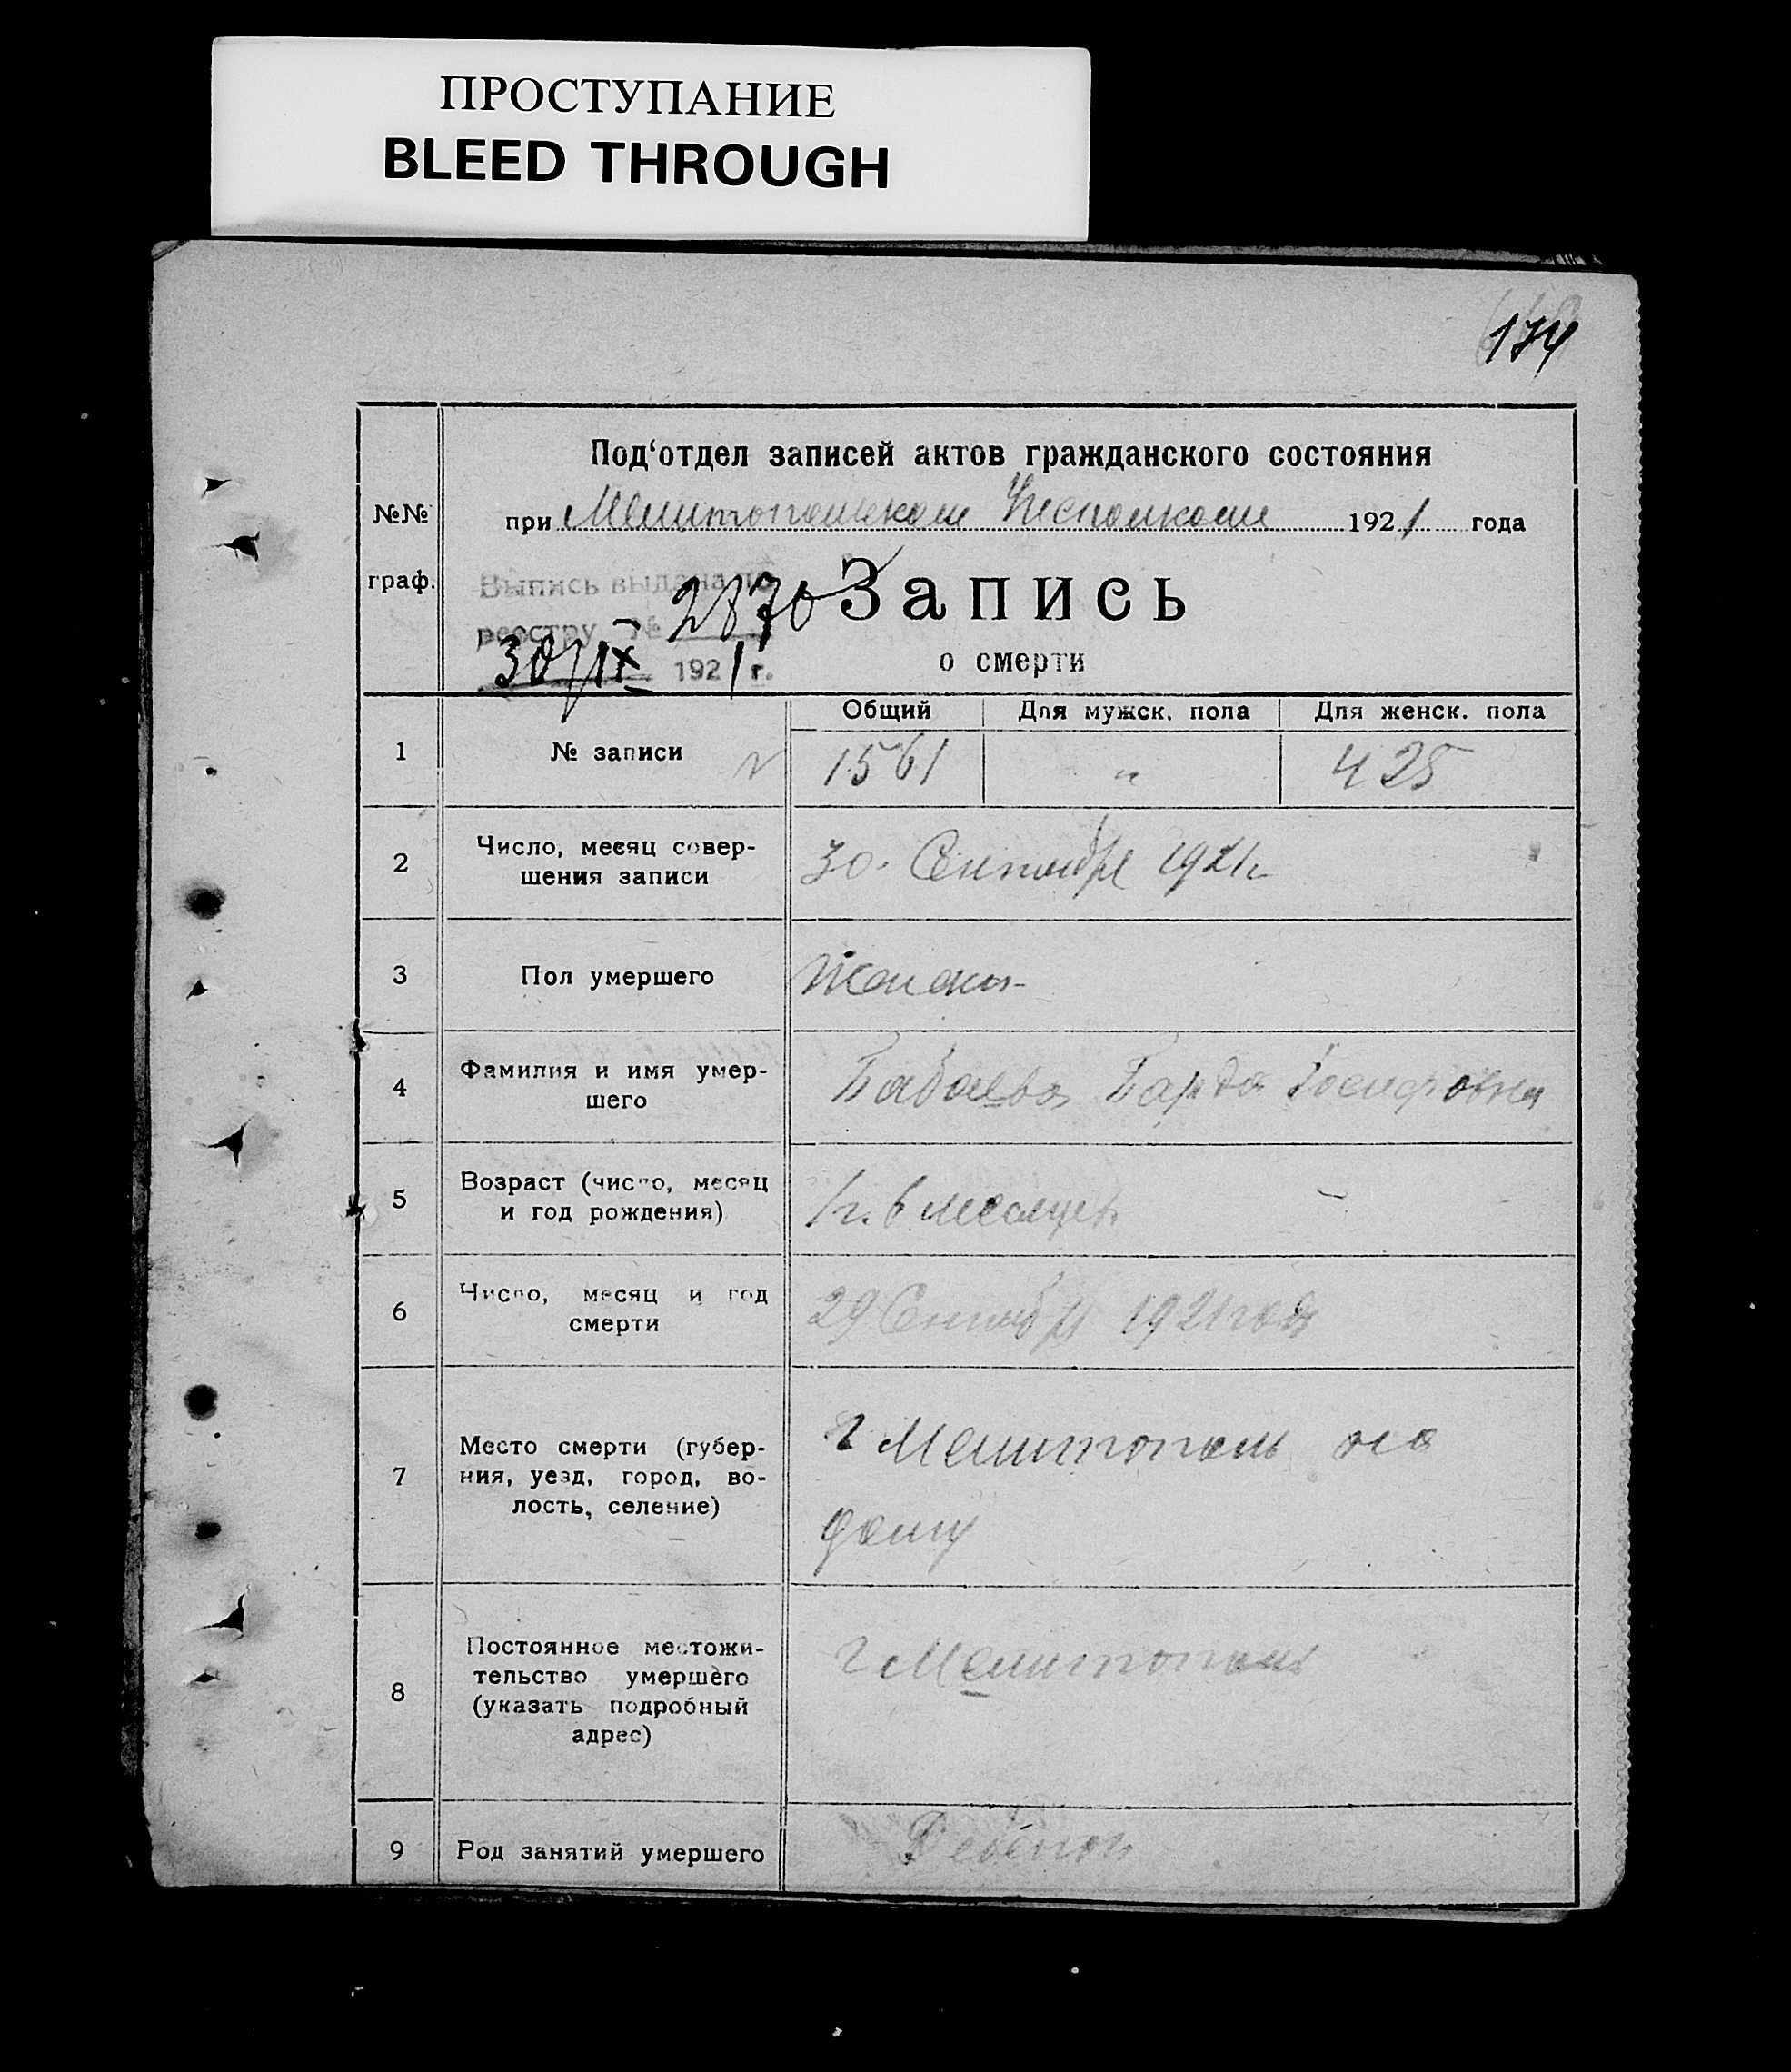 ПРОСТУПАНИЕ
BLEED THROUGH
174
Под‘отдел записей актов гражданского состояния
№№ граф.
при Мелитопольском Исполкоме 1921 года
Выпись выдана по
реестру № 2870
30/IX 1921 г.
Запись
о смерти
Общий Для мужск. пола Для женск. пола
1 № записи 1561 " 425
2 Число, месяц совер-
шения записи
30. Сентября 1921 г.
3 Пол умершего Женски-
4 Фамилия и имя умер-
шего
Бабаева Иосифовна
5 Возраст (число, месяц
и год рождения)
1 г. 6 месяцев
6 Число, месяц и год
смерти
29 Сентября 1921 года
7 Место смерти (губер-
ния, уезд, город, во-
лость, селение)
г Мелитополь на
дому
8 Постоянное местожи-
тельство умершего
(указать подробный
адрес)
г Мелитополь
9 Род занятий умершего Ребенок